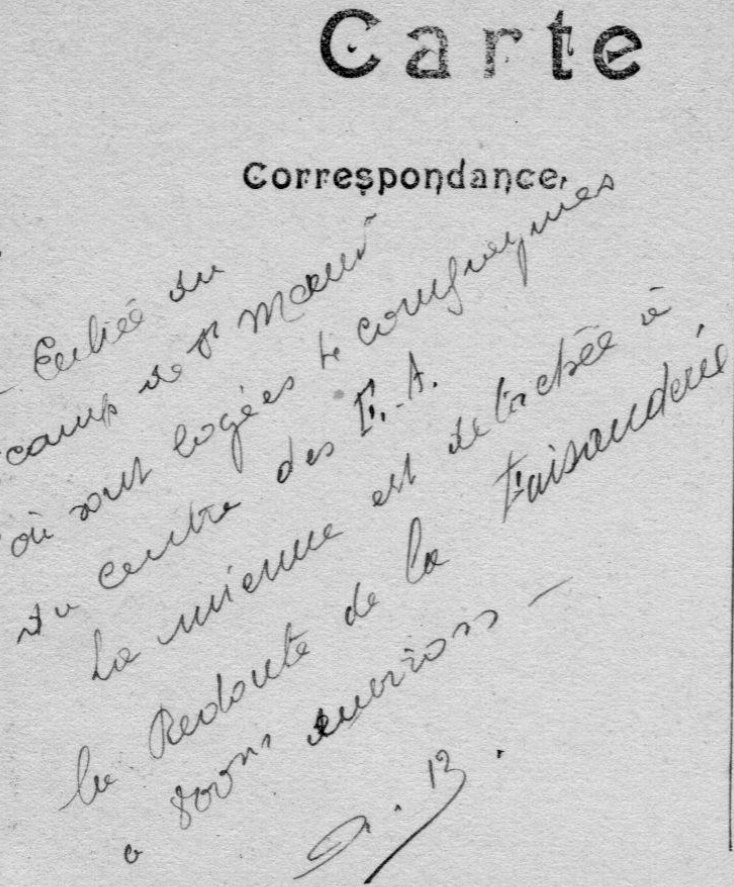 Carte
Correspondance.
- Entrée du
camp de St Maur
où sont logées 4 compagnies
du centre des E.A.
La mienne est detachée à
la Redoute de la Faisanderie
a 800m environs -